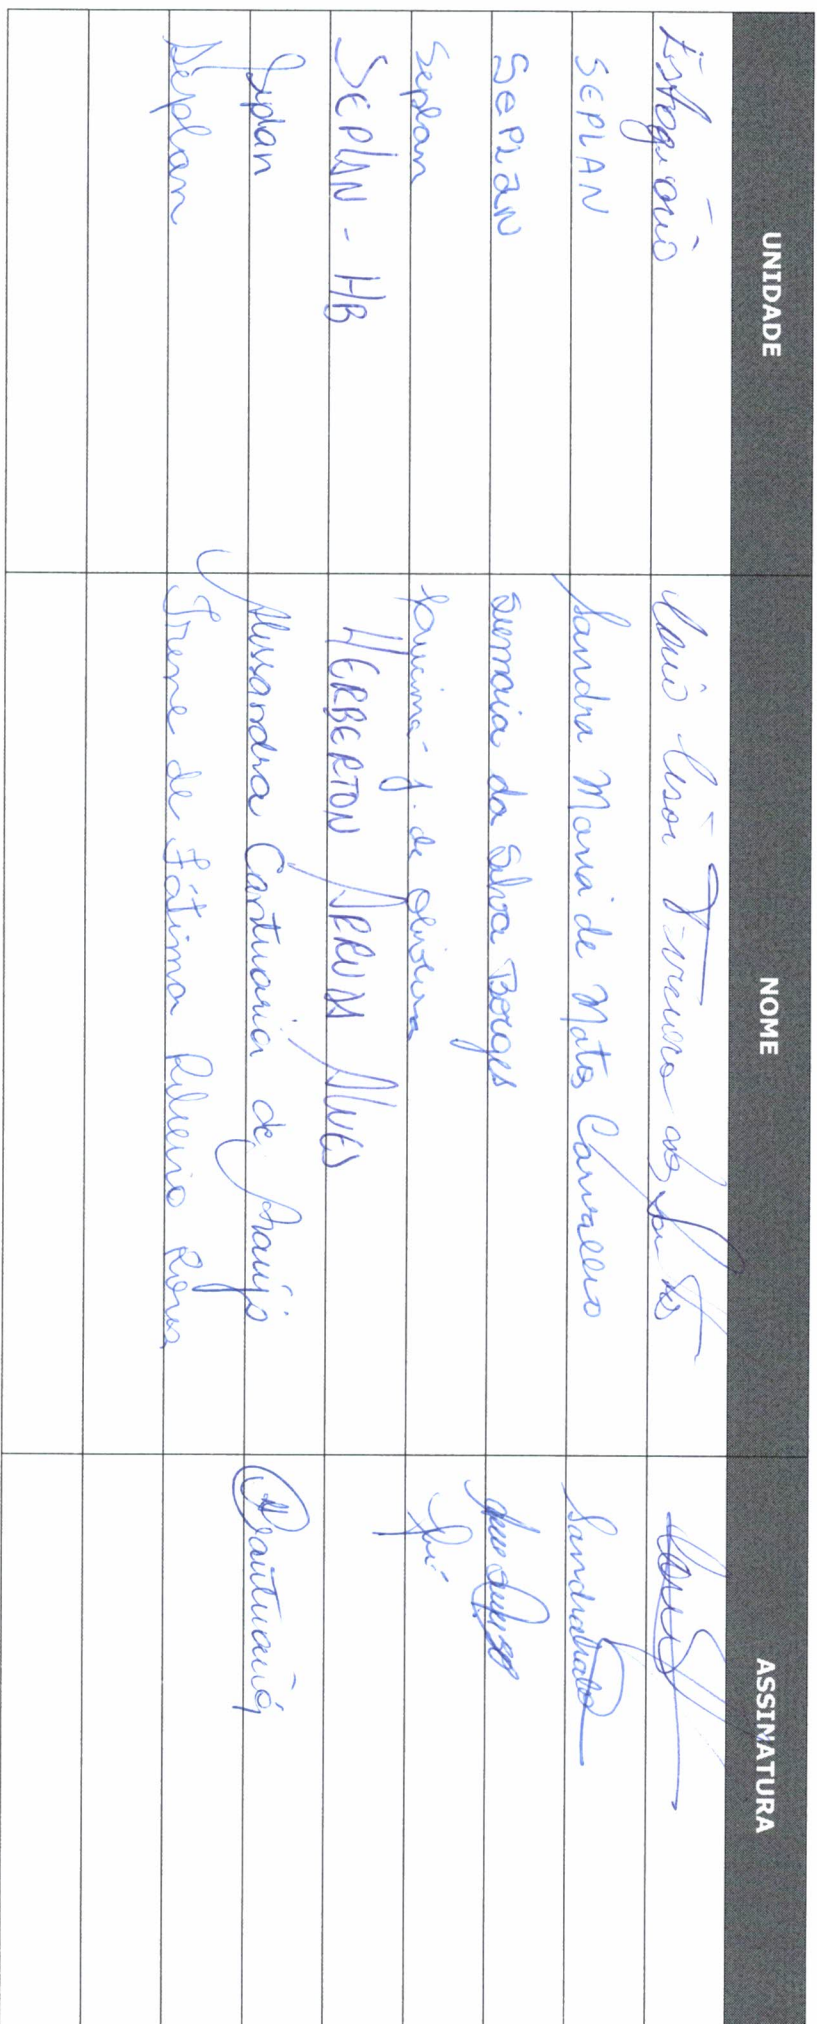 UNIDADE NOME ASSINATURA
Estagiário dos Santos
SEPLAN Sandra Maria de Matos Carvalho
SEPLAN da Silva Borges
Seplan J. de Oliveira
SEPLAN - HB HERBERTON ARRUDA ALVES
Seplan Alessandra Cantuaria de Araújo Cantuaria
Seplan Irene de Fátima Ribeiro